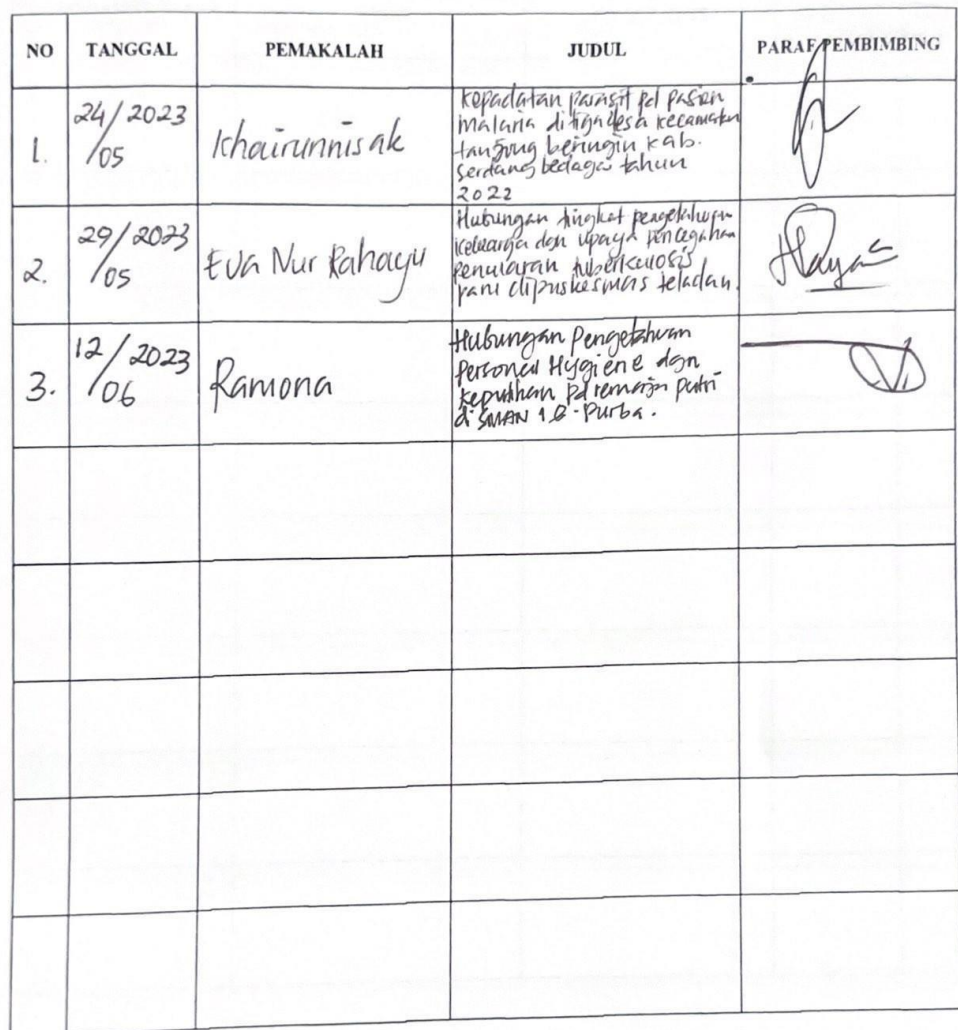 NO TANGGAL PEMAKALAH JUDUL PARAF PEMBIMBING
1.
24/2023
/05
Khairunnisak
Kepadatan parasit pd pasien
malaria ditiga desa kecamatan
tanjung beringin kab.
serdang bedagai tahun
2022
2.
29/2023
/05
Eva Nur Rahayu
Hubungan tingkat pengetahuan
keluarga dgn upaya pencegahan
penularan tuberkulosis
paru dipuskesmas teladan.
3.
12/2023
/06
Ramona
Hubungan Pengetahuan
Personal Hygiene dgn
keputihan pd remaja putri
di SMAN 1 Purba.